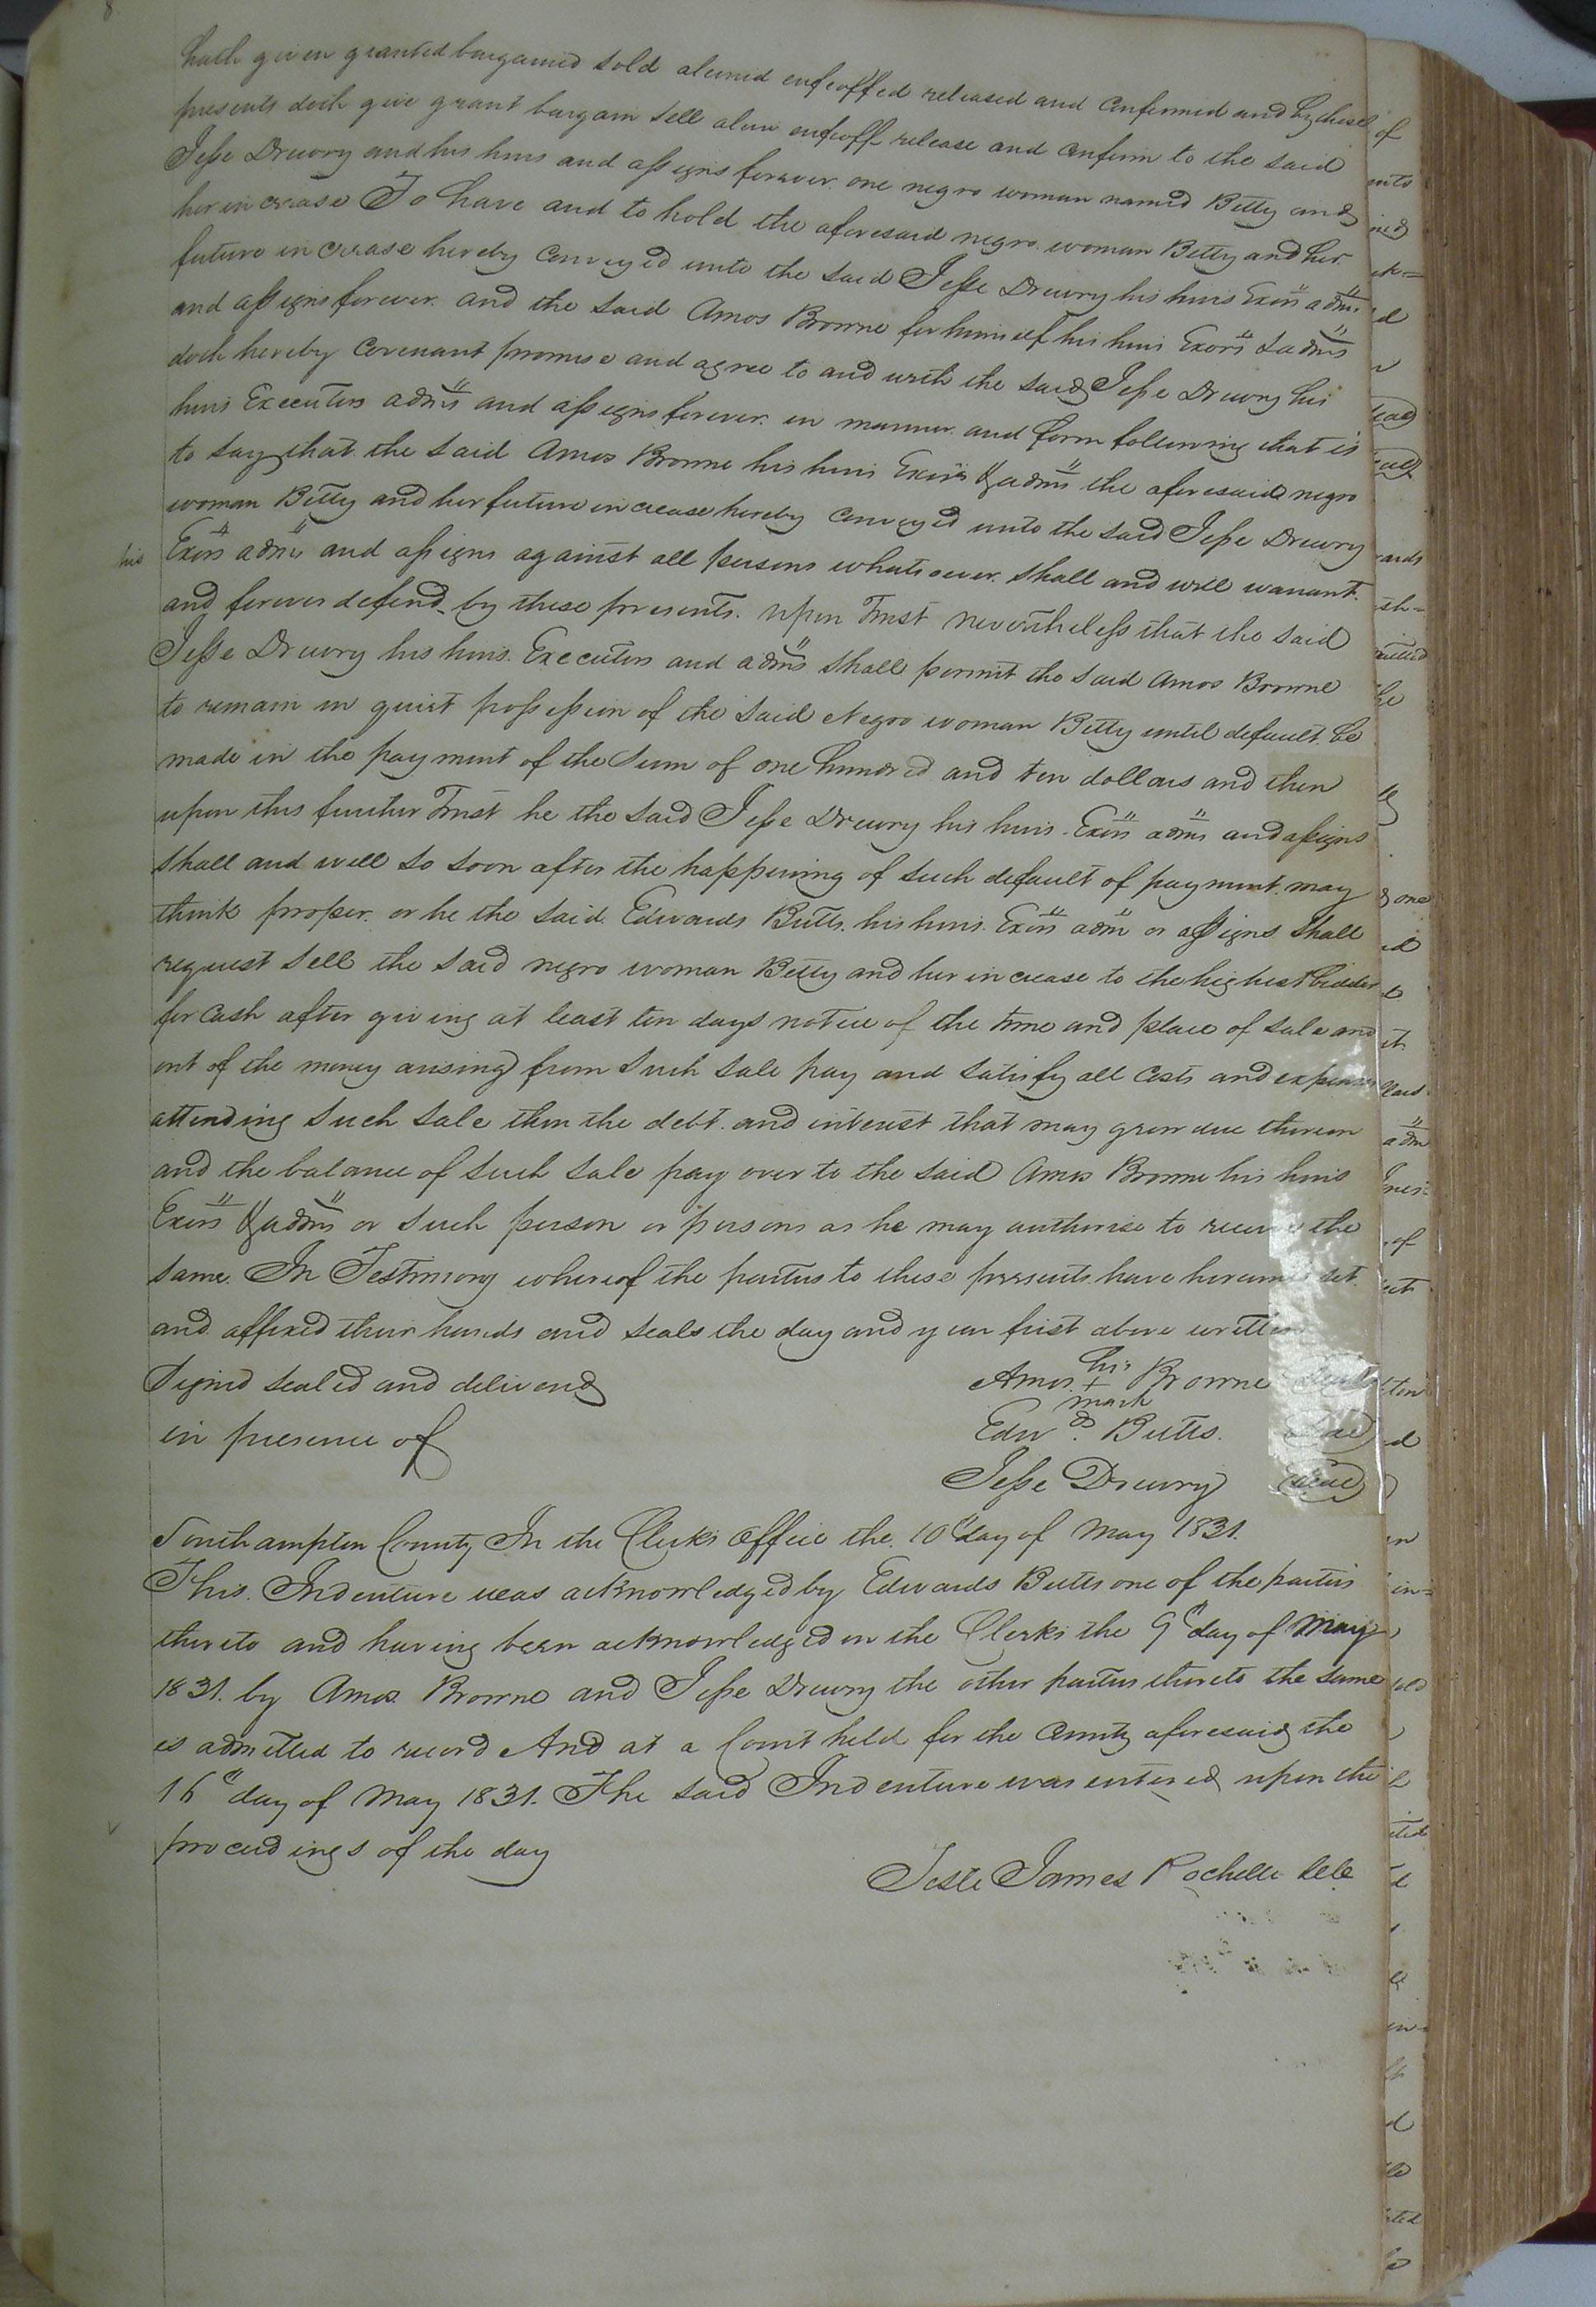 8
hath given granted bargained sold aliened enfeoffed released and confirmed and by these
presents doth give grant bargain sell alien enfeoff release and confirm to the said
Jesse Drewry and his heirs and assigns forever. one negro woman named Betty and
her increase To have and to hold the aforesaid negro woman Betty and her
future increase hereby conveyed unto the said Jesse Drewry his heirs Exors adms
and assigns forever. and the said Amos Browne for himself his heirs Exors & adms
doth hereby covenant promise and agree to and with the said Jesse Drewry his
heirs Executors adms and assigns forever. in manner and form following that is
to say that the said Amos Browne his heirs Exors & adms the aforesaid negro
woman Betty and her future increase hereby conveyed unto the said Jesse Drewry
his Exors adms and assigns against all persons whatsoever. shall and will warrant
and forever defend by these presents. upon Trust nevertheless that the said
Jesse Drewry his heirs. Executors and adms shall permit the said Amos Browne
to remain in quiet possession of the said Negro woman Betty until default be
made in the payment of the Sum of one hundred and ten dollars and then
upon this further Trust he the said Jesse Drewry his heirs. Exors adms and assigns
shall and will so soon after the happening of such default of payment. may
think proper. or he the said Edwards Butts. his heirs. Exors adm or assigns shall
request sell the said negro woman Betty and her increase to the highest bidder
for cash after giving at least ten days notice of the time and place of sale and
out of the money arising from such sale pay and satisfy all costs and expenses
attending such sale then the debt. and interest that may grow due thereon
and the balance of such sale pay over to the said Amos Browne his heirs
Exors & adms or such person or persons as he may authorise to receive the
same. In Testimony whereof the parties to these presents have hereunto set
and affixed their hands and seals the day and year first above written
Signed sealed and delivered
in presence of
his
Amos + Browne seal
mark
Edwd. Butts. seal
Jesse Drewry seal
Southampton County In the Clerks Office the. 10" day of May 1831.
This. Indenture was acknowledged by Edwards Butts one of the parties
thereto and having been acknowledged in the Clerks the 9" day of May
1831. by Amos Browne and Jesse Drewry the other parties thereto the same
is admitted to record And at a Court held for the County aforesaid the
16" day of May 1831. The said Indenture was entered upon the
proceedings of the day
Teste James Rochelle